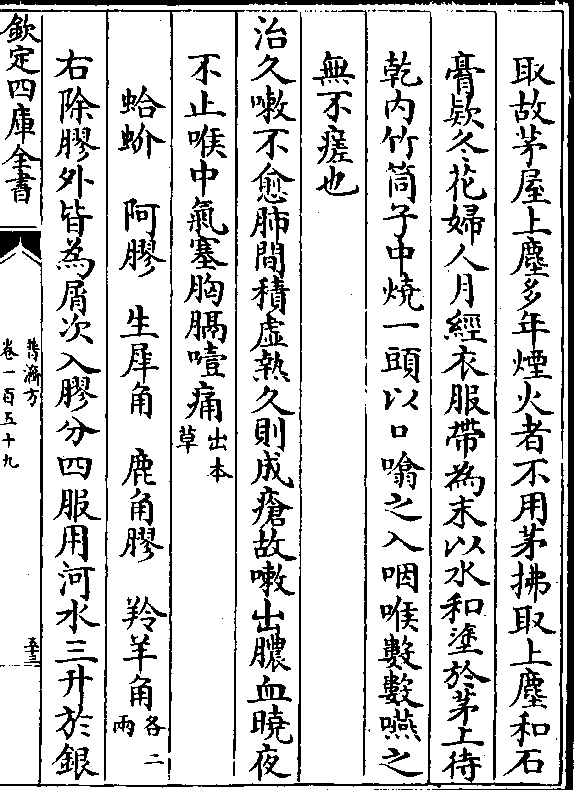 取故茅屋上塵多年煙火者不用茅拂取上塵和石
膏欵冬花婦人月經衣服帶為末以水和塗於茅上待
乾内竹筒子中燒一頭以口噏之入咽喉數數嚥之
無不瘥也
治久嗽不愈肺間積虛熱久則成瘡故嗽出膿血曉夜
不止喉中氣塞胸膈噎痛出本草
蛤蚧　阿膠　生犀角　鹿角膠　羚羊角各二兩
右除膠外皆為屑次入膠分四服用河水三升於銀
欽定四庫全書
普濟方
卷一百五十九
五三